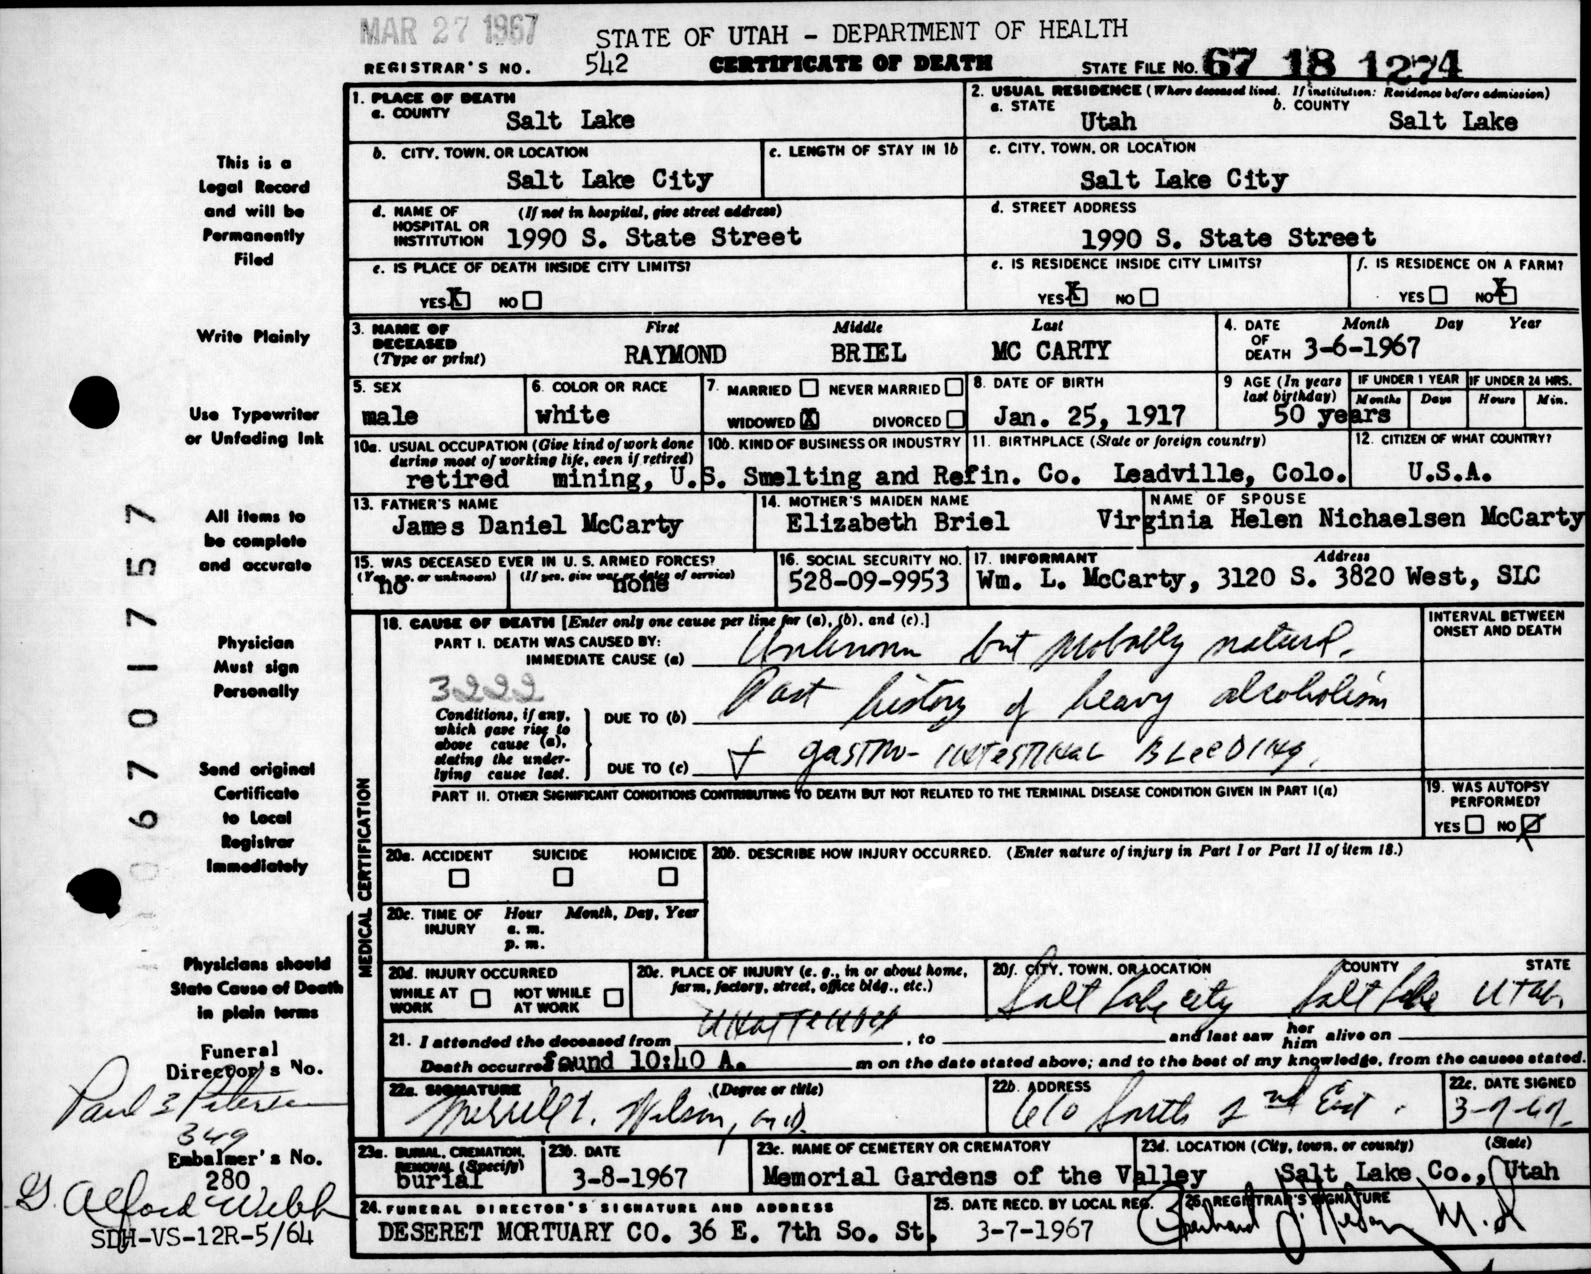 MAR 27 1967
STATE OF UTAH - DEPARTMENT OF HEALTH
REGISTRAR'S NO. 542 CERTIFICATE OF DEATH STATE FILE NO. 67 18 1274
This is a
Legal Record
and will be
Permanently
Filed
Write Plainly
Use Typewriter
or Unfading Ink
All items to
be complete
and accurate
Physician
Must sign
Personally
Send original
Certificate
to Local
Registrar
Immediately
Physicians should
State Cause of Death
in plain terms
Funeral
Director's No.
Paul S Petersen
349
Embalmer's No.
280
G. Alford Webb
SDH-VS-12R-5/64
0670 1757
1. PLACE OF DEATH
a. COUNTY Salt Lake
2. USUAL RESIDENCE (Where deceased lived. If institution: Residence before admission)
a. STATE Utah b. COUNTY Salt Lake
b. CITY, TOWN, OR LOCATION Salt Lake City
c. LENGTH OF STAY IN 1b
c. CITY, TOWN, OR LOCATION
Salt Lake City
d. NAME OF HOSPITAL OR INSTITUTION (If not in hospital, give street address)
1990 S. State Street
d. STREET ADDRESS
1990 S. State Street
e. IS PLACE OF DEATH INSIDE CITY LIMITS?
YES X NO
e. IS RESIDENCE INSIDE CITY LIMITS?
YES X NO
f. IS RESIDENCE ON A FARM?
YES NO X
3. NAME OF DECEASED (Type or print) First Middle Last
RAYMOND BRIEL MC CARTY
4. DATE OF DEATH Month Day Year
3-6-1967
5. SEX
male
6. COLOR OR RACE
white
7. MARRIED NEVER MARRIED
WIDOWED X DIVORCED
8. DATE OF BIRTH
Jan. 25, 1917
9 AGE (In years last birthday)
50 years
IF UNDER 1 YEAR
Months Days
IF UNDER 24 HRS.
Hours Min.
10a. USUAL OCCUPATION (Give kind of work done during most of working life, even if retired)
10b. KIND OF BUSINESS OR INDUSTRY
retired mining, U.S. Smelting and Refin. Co.
11. BIRTHPLACE (State or foreign country)
Leadville, Colo.
12. CITIZEN OF WHAT COUNTRY?
U.S.A.
13. FATHER'S NAME
James Daniel McCarty
14. MOTHER'S MAIDEN NAME
Elizabeth Briel
NAME OF SPOUSE
Virginia Helen Nichaelsen McCarty
15. WAS DECEASED EVER IN U. S. ARMED FORCES?
(Yes, no, or unknown) (If yes, give war or dates of service)
no none
16. SOCIAL SECURITY NO.
528-09-9953
17. INFORMANT Address
Wm. L. McCarty, 3120 S. 3820 West, SLC
MEDICAL CERTIFICATION
18. CAUSE OF DEATH [Enter only one cause per line for (a), (b), and (c).]
INTERVAL BETWEEN ONSET AND DEATH
PART I. DEATH WAS CAUSED BY:
IMMEDIATE CAUSE (a) Unknown but probably natural.
3222
Conditions, if any, which gave rise to above cause (a), stating the underlying cause last.
DUE TO (b) Past history of heavy alcoholism
DUE TO (c) + gastro-intestinal BLEEDING.
PART II. OTHER SIGNIFICANT CONDITIONS CONTRIBUTING TO DEATH BUT NOT RELATED TO THE TERMINAL DISEASE CONDITION GIVEN IN PART I(a)
19. WAS AUTOPSY PERFORMED?
YES NO X
20a. ACCIDENT SUICIDE HOMICIDE
20b. DESCRIBE HOW INJURY OCCURRED. (Enter nature of injury in Part I or Part II of item 18.)
20c. TIME OF INJURY Hour Month, Day, Year
a. m.
p. m.
20d. INJURY OCCURRED
WHILE AT WORK NOT WHILE AT WORK
20e. PLACE OF INJURY (e. g., in or about home, farm, factory, street, office bldg., etc.)
20f. CITY, TOWN, OR LOCATION COUNTY STATE
Salt Lake City Salt Lake Utah
21. I attended the deceased from Unattended, to and last saw her him alive on
Death occurred found 10:40 A. m on the date stated above; and to the best of my knowledge, from the causes stated.
22a. SIGNATURE (Degree or title)
Merrill L. Wilson, M.D.
22b. ADDRESS
610 South 2nd East.
22c. DATE SIGNED
3-7-67.
23a. BURIAL, CREMATION, REMOVAL (Specify)
burial
23b. DATE
3-8-1967
23c. NAME OF CEMETERY OR CREMATORY
Memorial Gardens of the Valley
23d. LOCATION (City, town, or county) (State)
Salt Lake Co., Utah
24. FUNERAL DIRECTOR'S SIGNATURE AND ADDRESS
DESERET MORTUARY CO. 36 E. 7th So. St.
25. DATE RECD. BY LOCAL REG.
3-7-1967
26. REGISTRAR'S SIGNATURE
M.D